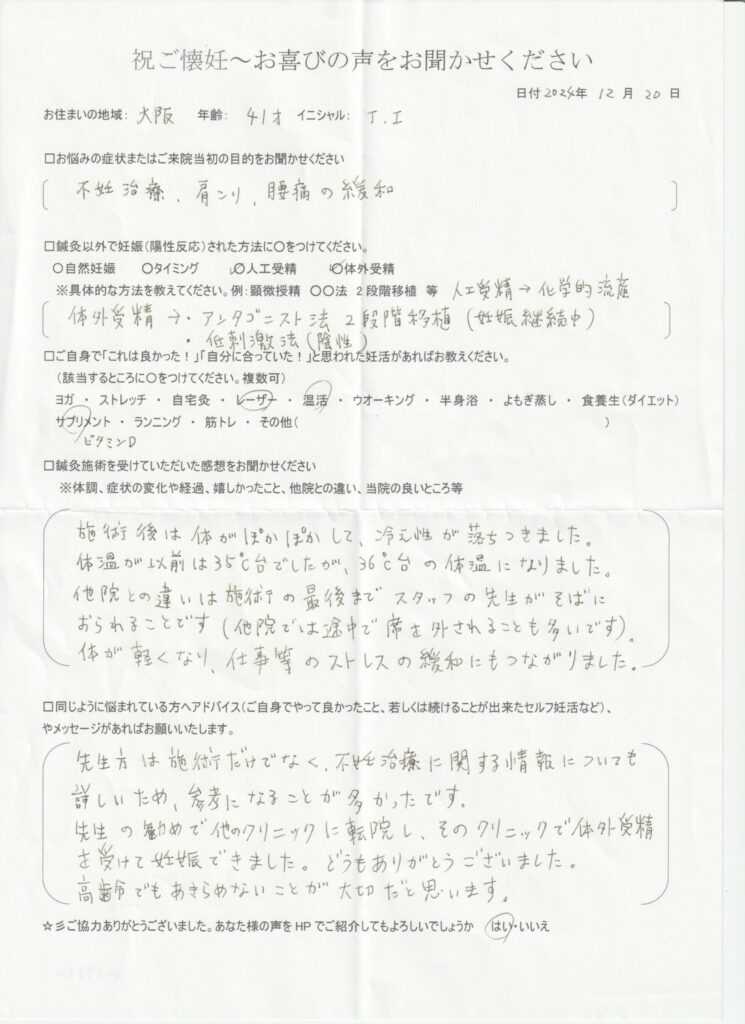 祝ご懐妊～お喜びの声をお聞かせください
日付2024年 12月 20日
お住まいの地域: 大阪 年齢: 41才 イニシャル: J.I
□お悩みの症状またはご来院当初の目的をお聞かせください
不妊治療、肩こり、腰痛の緩和
□鍼灸以外で妊娠(陽性反応)された方法に〇をつけてください。
〇自然妊娠 〇タイミング 〇人工受精 〇体外受精
※具体的な方法を教えてください。例:顕微授精 〇〇法 2段階移植 等 人工受精→化学的流産
体外受精→・アンタゴニスト法 2段階移植(妊娠継続中)
・低刺激法(陰性)
□ご自身で「これは良かった!」「自分に合っていた!」と思われた妊活があればお教えください。
(該当するところに〇をつけてください。複数可)
ヨガ ・ ストレッチ ・ 自宅灸 ・ レーザー ・ 温活 ・ ウオーキング ・ 半身浴 ・ よもぎ蒸し ・ 食養生(ダイエット)
サプリメント ・ ランニング ・ 筋トレ ・ その他( )
ビタミンD
□鍼灸施術を受けていただいた感想をお聞かせください
※体調、症状の変化や経過、嬉しかったこと、他院との違い、当院の良いところ等
施術後は体がぽかぽかして、冷え性が落ちつきました。
体温が以前は35℃台でしたが、36℃台の体温になりました。
他院との違いは施術の最後までスタッフの先生がそばに
おられることです(他院では途中で席を外されることも多いです)。
体が軽くなり、仕事等のストレスの緩和にもつながりました。
□同じように悩まれている方へアドバイス(ご自身でやって良かったこと、若しくは続けることが出来たセルフ妊活など)、
やメッセージがあればお願いいたします。
先生方は施術だけでなく、不妊治療に関する情報についても
詳しいため、参考になることが多かったです。
先生の勧めで他のクリニックに転院し、そのクリニックで体外受精
を受けて妊娠できました。どうもありがとうございました。
高齢でもあきらめないことが大切だと思います。
☆彡ご協力ありがとうございました。あなた様の声をHPでご紹介してもよろしいでしょうか はい・いいえ